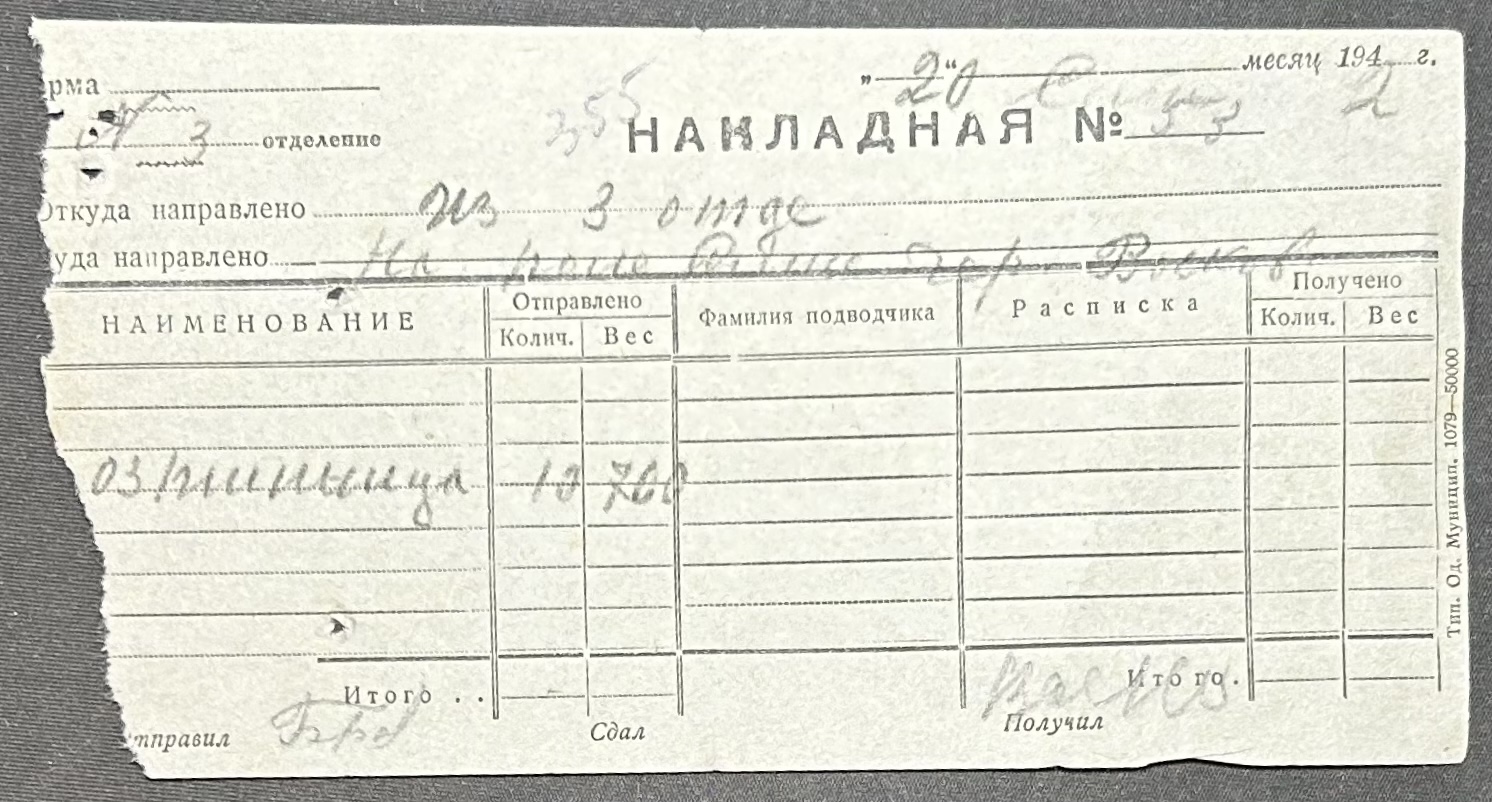 рма
„ 20 “ месяц 194 2 г.
3 отделение
355
НАКЛАДНАЯ № 53
Откуда направлено из 3 отде
уда направлено На
НАИМЕНОВАНИЕ Отправлено Фамилия подводчика Расписка Получено
Колич. Вес Колич. Вес
оз пшиница 10 700
Итого . . Итого.
тправил Сдал Получил
Тип. Од. Муницип. 1079—50000